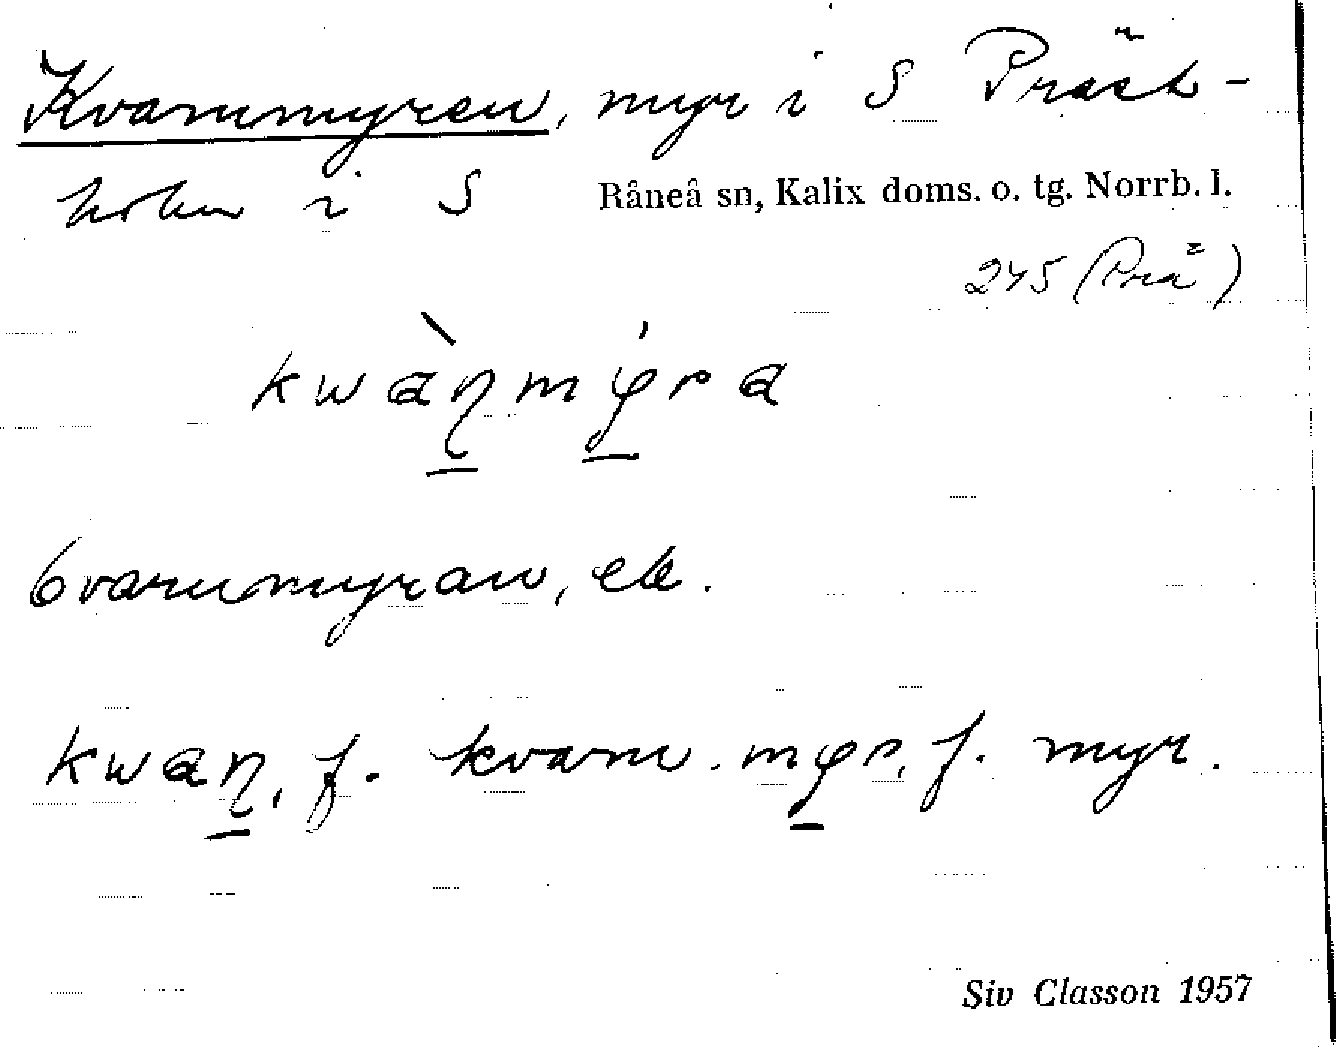 Kvarnmyren, myr i S Präst-
holm i S Råneå sn, Kalix doms. o. tg. Norrb. l.
245 (Prä)
kwàɳmýra
Kvarnmyran, ek.
kwaɳ, f. kvarn. myr, f. myr.
Siv Classon 1957